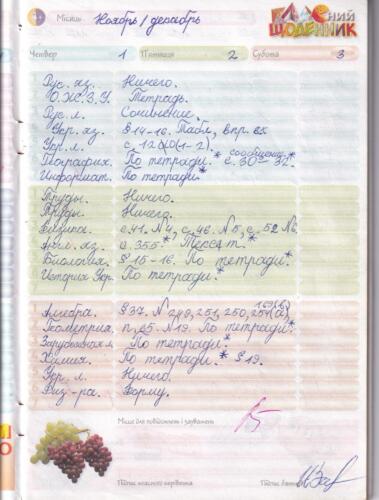 Місяць Ноябрь / декабрь
Класний щоденник
Четвер 1 П'ятниця 2 Субота 3
Рус. яз. Ничего.
О.Ж.З.У. Тетрадь.
Рус. л. Сочинение.
Укр. яз. §14-16. Табл, впр. 85
Укр. л. с. 120
География. По тетради.* сообщение* с. 30-32.
Информат. По тетради.*
Труды. Ничего.
Труды. Ничего.
Физика. с 41. №4, с. 46. №5, с. 52 №6.
Англ. яз. с. 355* Тесст.*
Биология. § 15-16. По тетради.*
История Укр. По тетради.*
169(в)
Алгебра. §37. №249, 251, 250, 251(а)
Геометрия. п. 65. №19. По тетради*
Зарубежная л. По тетради.*
Химия. По тетради.* §19.
Укр. л. Ничего.
Физ-ра. Форму.
Місце для повідомлень і зауважень
Підпис класного керівника Підпис батьків